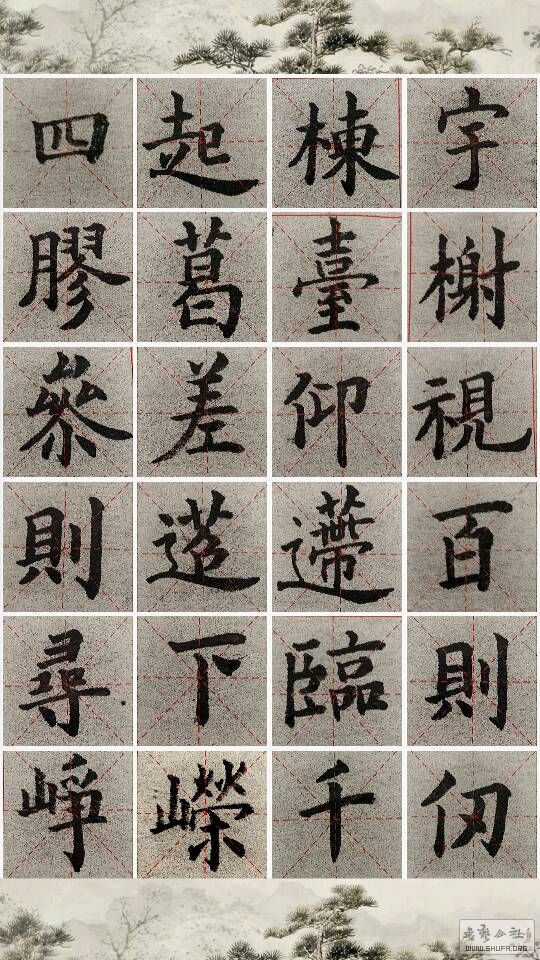 四起棟宇
膠葛臺榭
參差仰視
則迢遰百
尋下臨則
崢嶸千仞
书艺公社
WWW.SHUFA.ORG